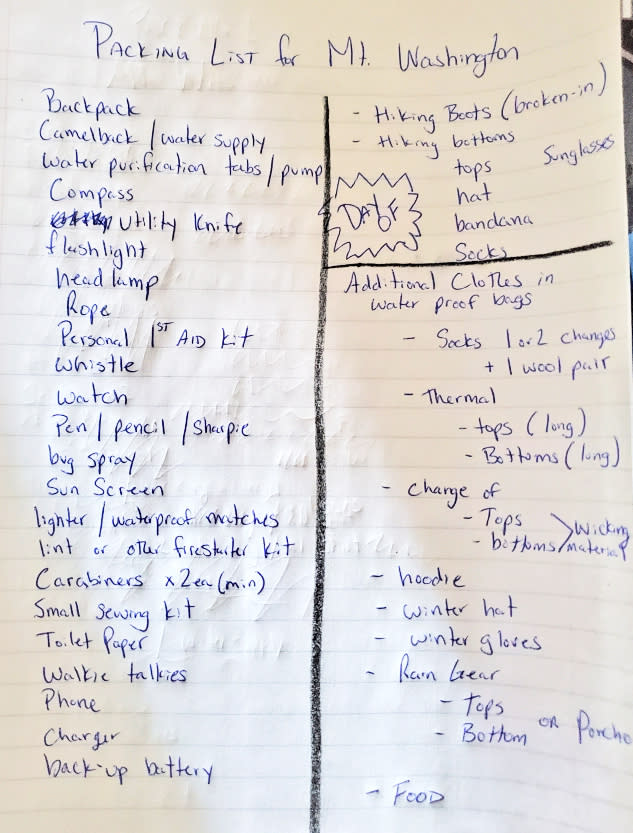 PACKING LIST for Mt. Washington
Backpack
Camelback / water supply
water purification tabs / pump
Compass
utility knife
flashlight
head lamp
Rope
Personal 1ST AID kit
whistle
watch
Pen / pencil / sharpie
bug spray
Sun Screen
lighter / waterproof matches
lint or other firestarter kit
Carabiners x2ea (min)
Small sewing kit
Toilet Paper
Walkie talkies
Phone
Charger
back-up battery
- Hiking Boots (broken-in)
- Hiking bottoms
Sunglasses
tops
hat
DAY OF
bandana
Socks
Additional Clothes in
water proof bags
- Socks 1 or 2 changes
+ 1 wool pair
- Thermal
- tops (long)
- Bottoms (long)
- change of
- Tops
- bottoms
wicking
material
- hoodie
- winter hat
- winter gloves
- Rain Gear
- Tops
- Bottom
OR Poncho
- FOOD